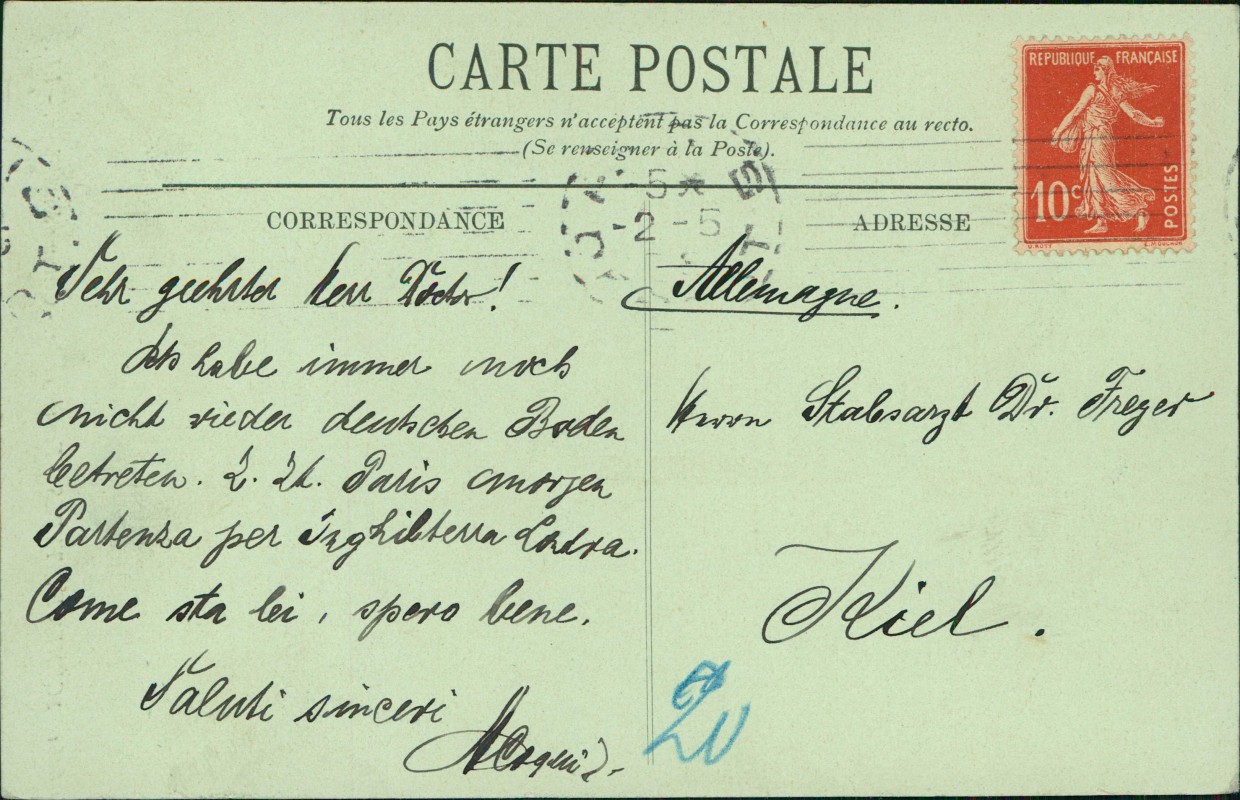 CARTE POSTALE
Tous les Pays étrangers n'acceptent pas la Correspondance au recto.
(Se renseigner à la Poste).
REPUBLIQUE FRANÇAISE
10 c
POSTES
CORRESPONDANCE
Sehr geehrter Herr Doctor!
Ich habe immer noch
nicht wieder deutschen Boden
betreten. Z. Zt. Paris morgen
Partenza per Inghilterra Londra.
Come sta lei, spero bene.
Saluti sinceri
ADRESSE
Allemagne.
Herrn Stabsarzt Dr. Freyer
Kiel.